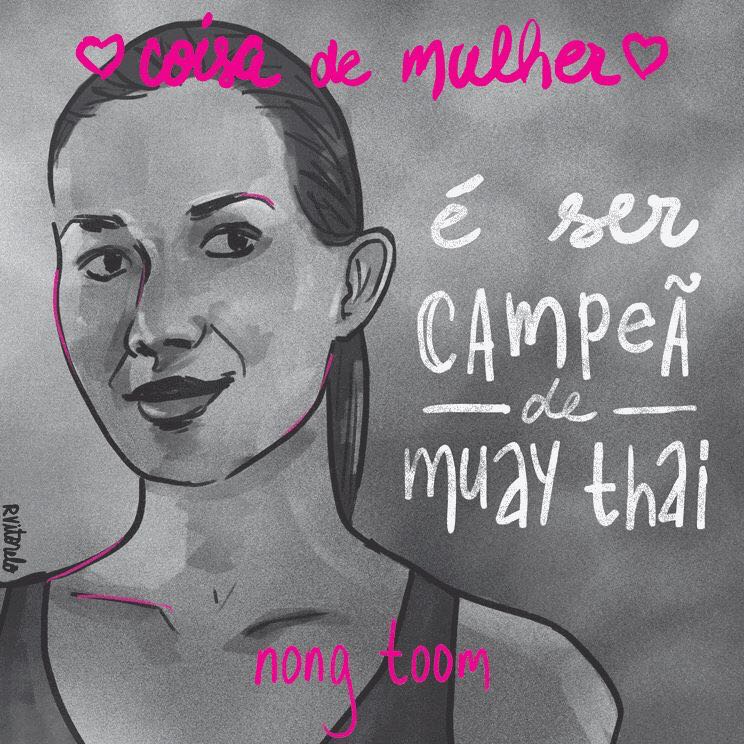 ♡ coisa de mulher ♡
é ser
CAMPEÃ
de
muay thai
RVitorelo
nong toom